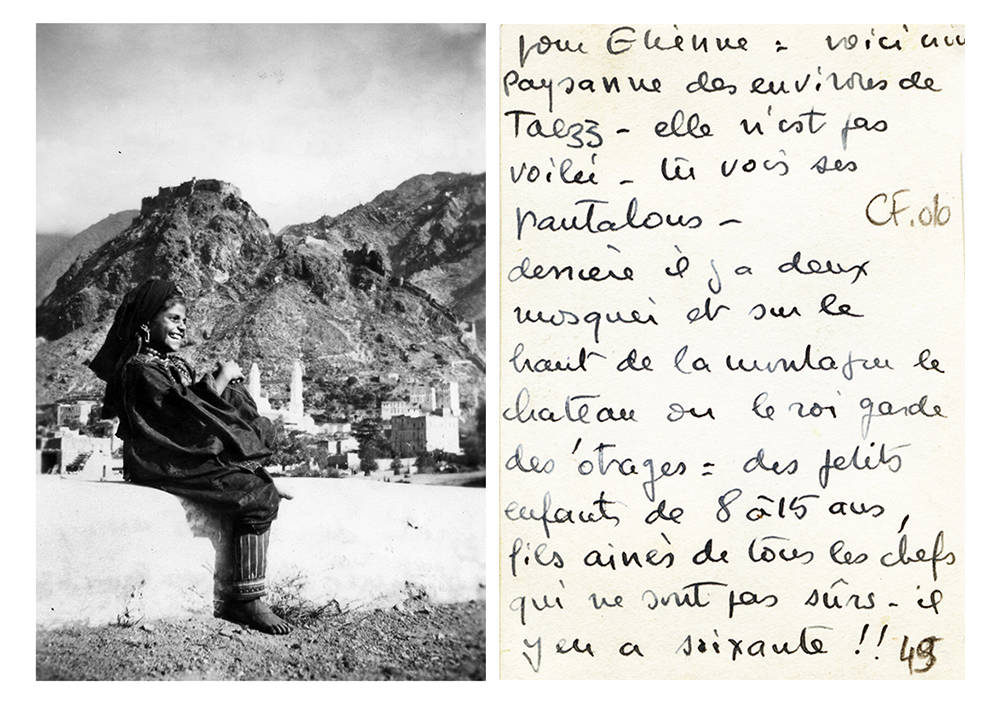 pour Etienne = voici un
Paysanne des environs de
Taezz - elle n'est pas
voilée - tu vois ses
pantalons -
CF.06
derrière il y a deux
mosquei et sur le
haut de la montagne le
chateau ou le roi garde
des otages = des petits
enfants de 8 à 15 ans,
fils ainés de tous les chefs
qui ne sont pas sûrs - il
y en a soixante !!
49